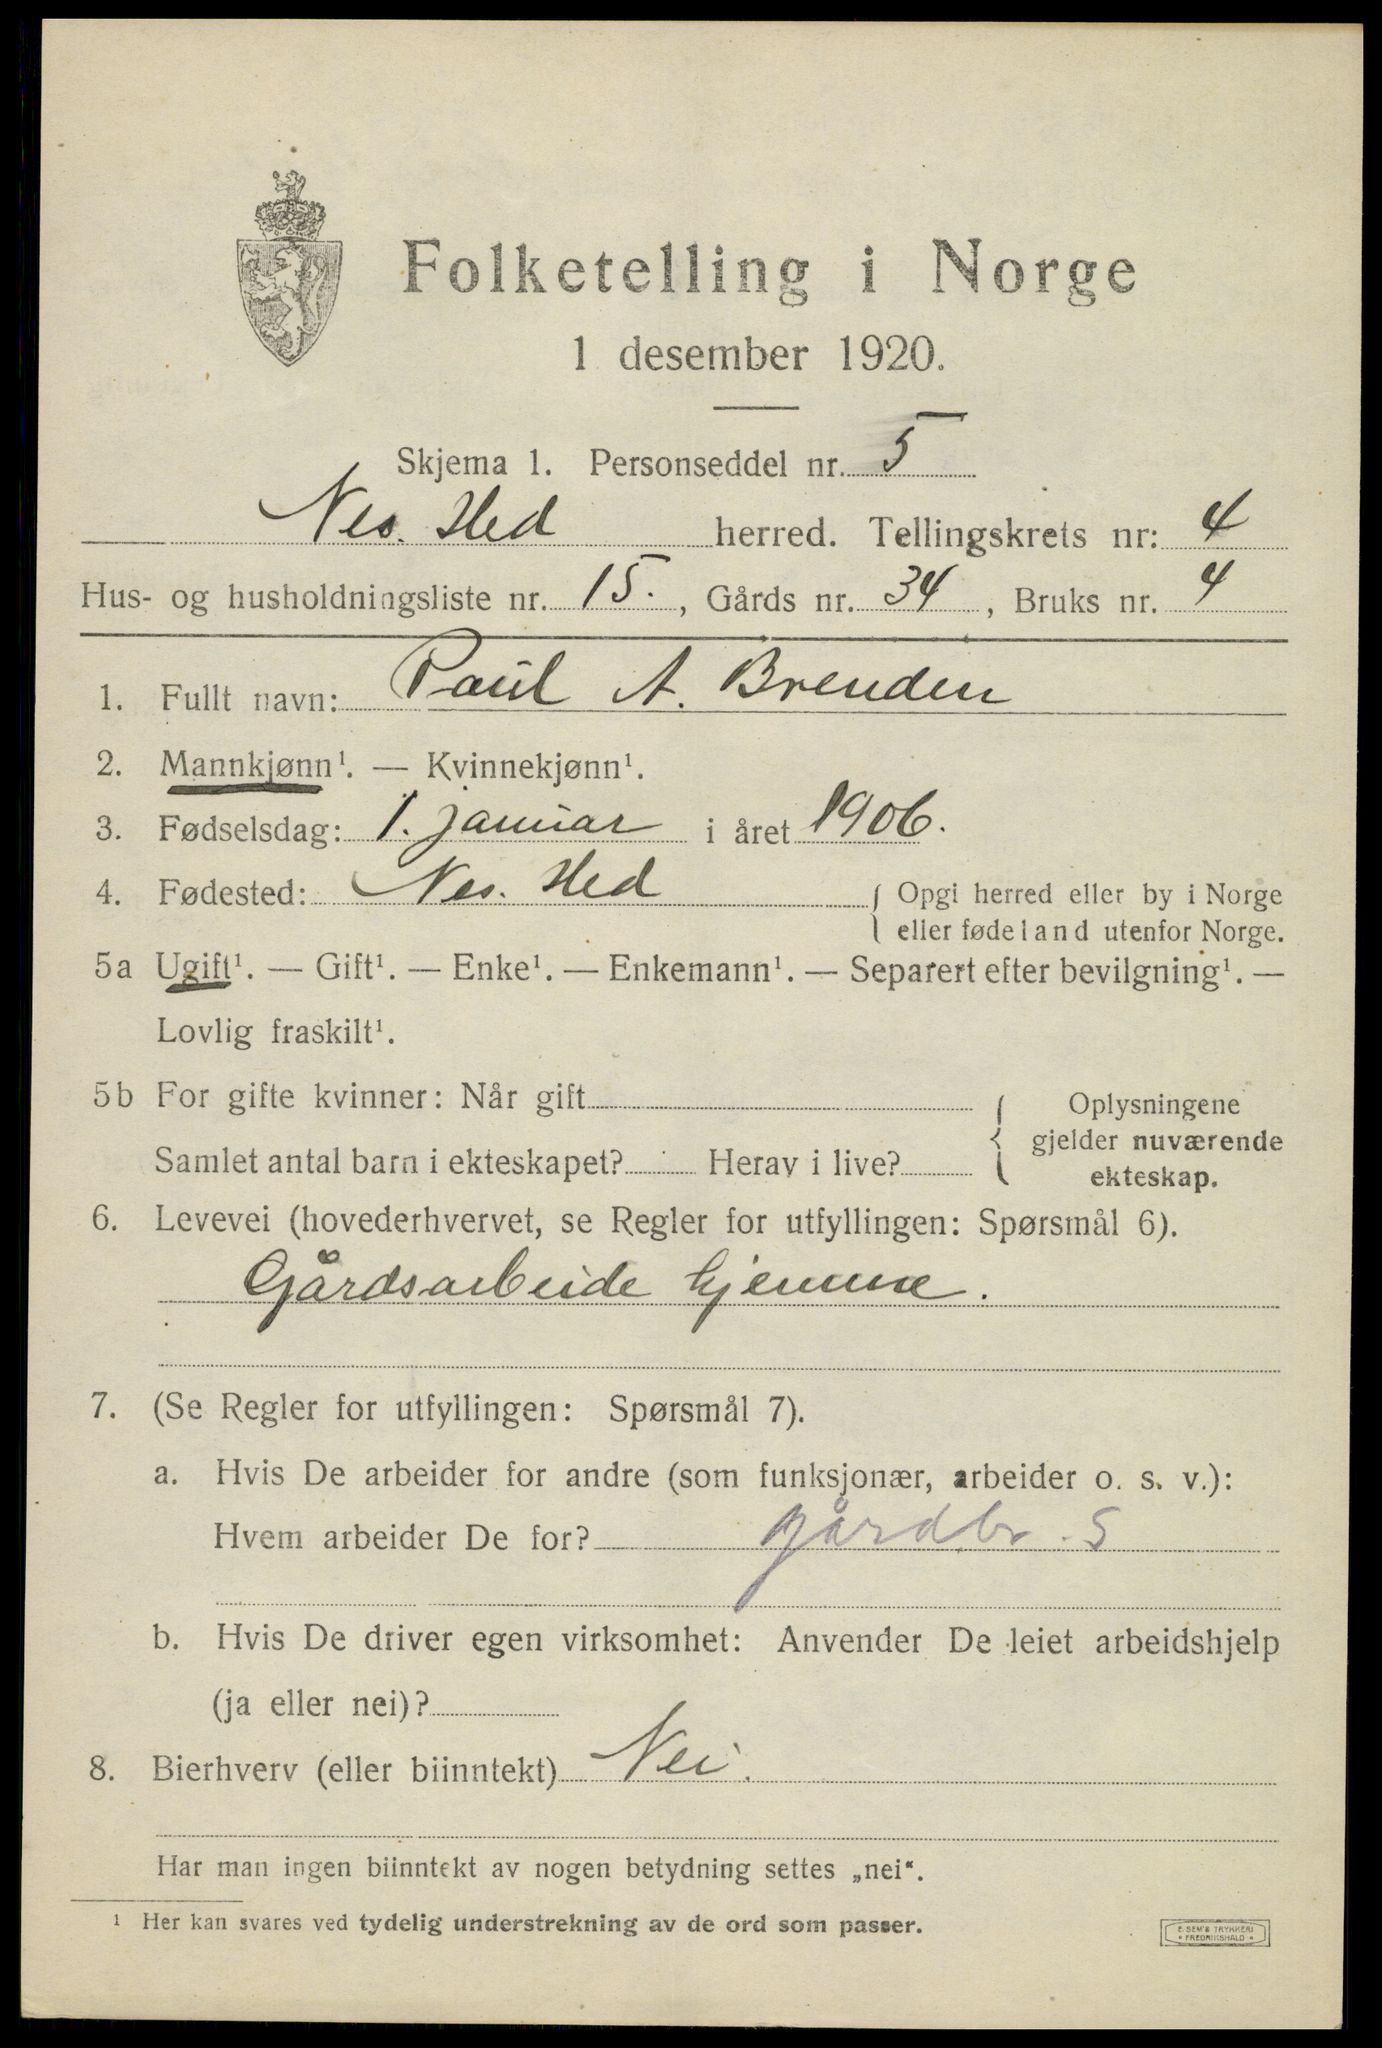 Folketelling i Norge
1 desember 1920.
Skjema 1. Personseddel nr. 5
Nes. Hed herred. Tellingskrets nr: 4
Hus- og husholdningsliste nr. 15. , Gårds nr. 34 , Bruks nr. 4
1. Fullt navn: Paul A. Brenden
2. Mannkjønn¹. — Kvinnekjønn¹.
3. Fødselsdag: 1. januar i året 1906.
4. Fødested: Nes. Hed { Opgi herred eller by i Norge
eller fødeland utenfor Norge.
5a Ugift¹. — Gift¹. — Enke¹. — Enkemann¹. — Separert efter bevilgning¹. —
Lovlig fraskilt¹.
5b For gifte kvinner: Når gift
Samlet antal barn i ekteskapet? Herav i live?
{ Oplysningene
gjelder nuværende
ekteskap.
6. Levevei (hovederhvervet, se Regler for utfyllingen: Spørsmål 6).
Gårdsarbeide hjemme.
7. (Se Regler for utfyllingen: Spørsmål 7).
a. Hvis De arbeider for andre (som funksjonær, arbeider o. s. v.):
Hvem arbeider De for? gårdbr. S
b. Hvis De driver egen virksomhet: Anvender De leiet arbeidshjelp
(ja eller nei)?
8. Bierhverv (eller biinntekt) Nei.
Har man ingen biinntekt av nogen betydning settes „nei“.
¹ Her kan svares ved tydelig understrekning av de ord som passer.
E. SEM'S TRYKKERI
• FREDRIKSHALD •